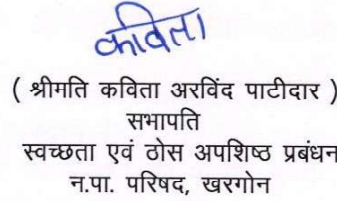 कविता
( श्रीमति कविता अरविंद पाटीदार )
सभापति
स्वच्छता एवं ठोस अपशिष्ठ प्रबंधन
न.पा. परिषद, खरगोन